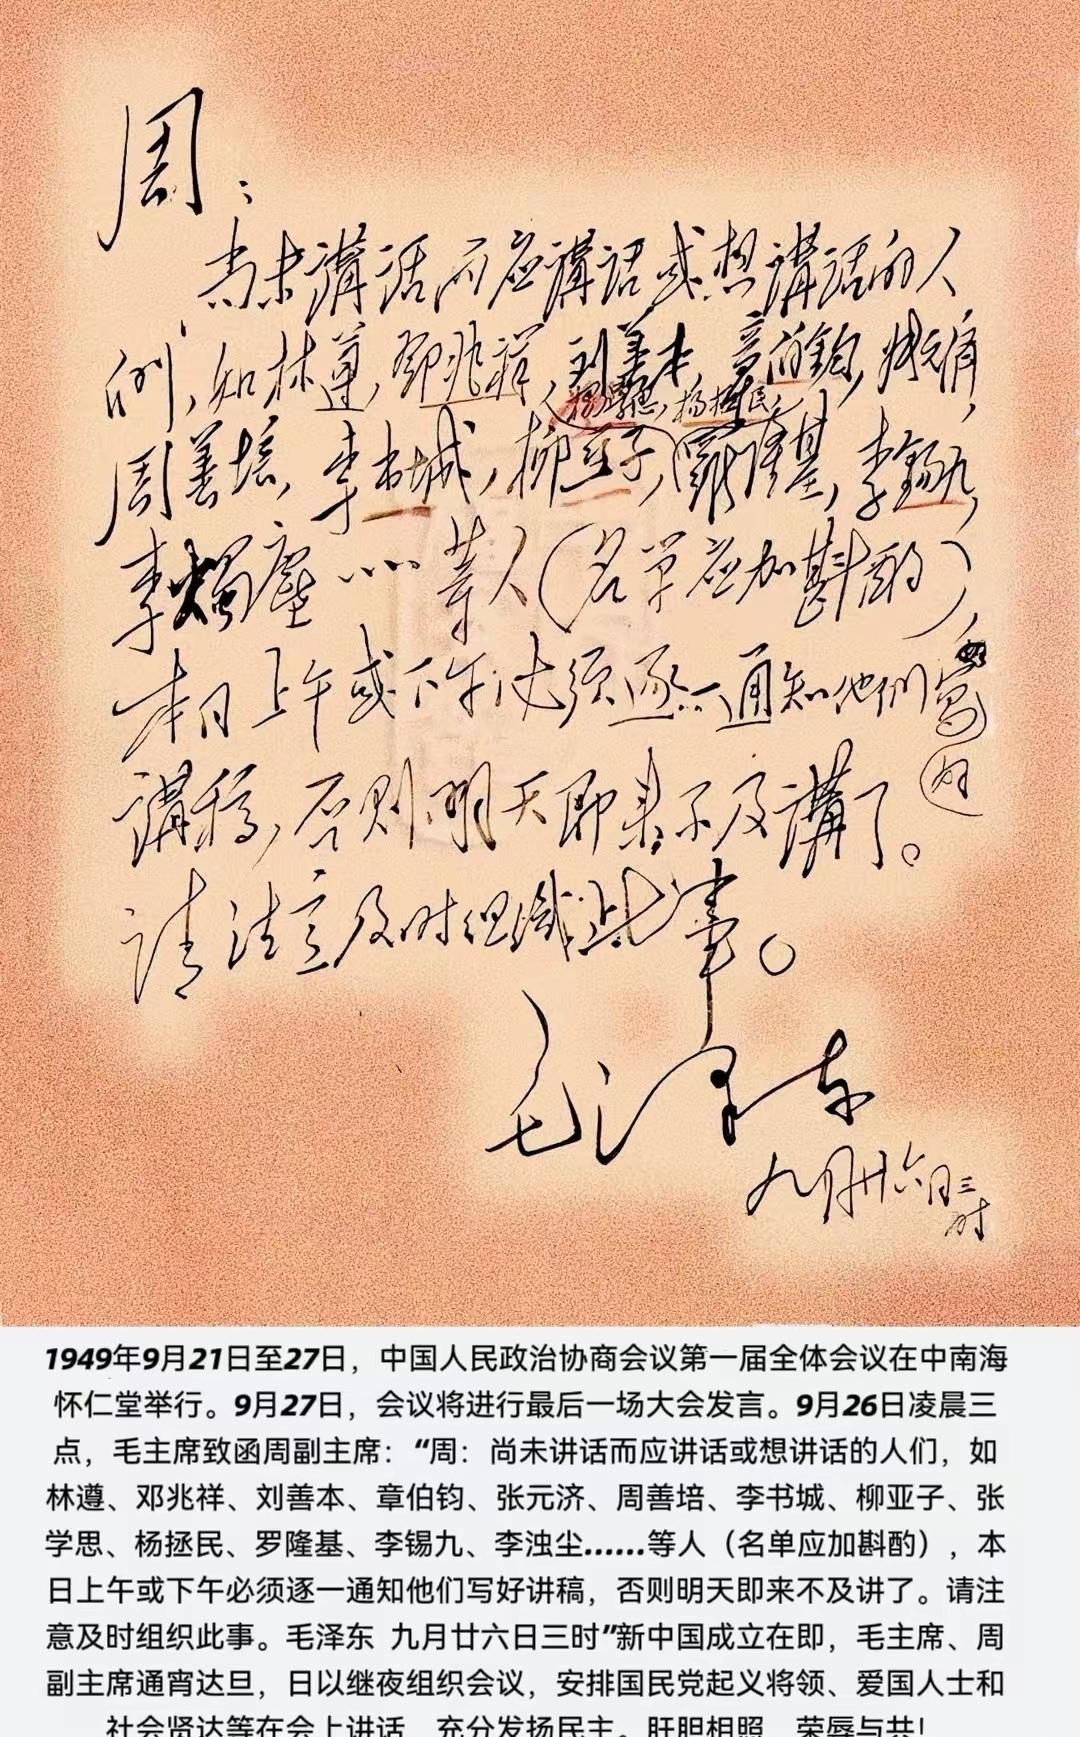 周：
尚未講话而应講话或想講话的人
们，如林遵，邓兆祥，刘善本，章伯鈞，张元济，
张学思，杨拯民，
周善培，李书城，柳亚子，羅隆基，李錫九，
李燭塵……等人（名单应加斟酌），
本日上午或下午必须逐一通知他们寫好
講稿，否则明天即来不及講了。
请注意及时组織此事。
毛泽东
九月廿六日三时
1949年9月21日至27日，中国人民政治协商会议第一届全体会议在中南海
怀仁堂举行。9月27日，会议将进行最后一场大会发言。9月26日凌晨三
点，毛主席致函周副主席：“周：尚未讲话而应讲话或想讲话的人们，如
林遵、邓兆祥、刘善本、章伯钧、张元济、周善培、李书城、柳亚子、张
学思、杨拯民、罗隆基、李锡九、李浊尘……等人（名单应加斟酌），本
日上午或下午必须逐一通知他们写好讲稿，否则明天即来不及讲了。请注
意及时组织此事。毛泽东 九月廿六日三时”新中国成立在即，毛主席、周
副主席通宵达旦，日以继夜组织会议，安排国民党起义将领、爱国人士和
社会贤达等在会上讲话，充分发扬民主。肝胆相照，荣辱与共！